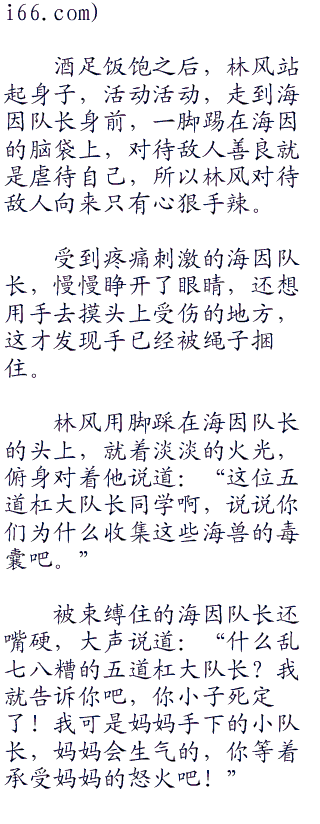 i66.com)
酒足饭饱之后，林风站
起身子，活动活动，走到海
因队长身前，一脚踢在海因
的脑袋上，对待敌人善良就
是虐待自己，所以林风对待
敌人向来只有心狠手辣。
受到疼痛刺激的海因队
长，慢慢睁开了眼睛，还想
用手去摸头上受伤的地方，
这才发现手已经被绳子捆
住。
林风用脚踩在海因队长
的头上，就着淡淡的火光，
俯身对着他说道：“这位五
道杠大队长同学啊，说说你
们为什么收集这些海兽的毒
囊吧。”
被束缚住的海因队长还
嘴硬，大声说道：“什么乱
七八糟的五道杠大队长？我
就告诉你吧，你小子死定
了！我可是妈妈手下的小队
长，妈妈会生气的，你等着
承受妈妈的怒火吧！”